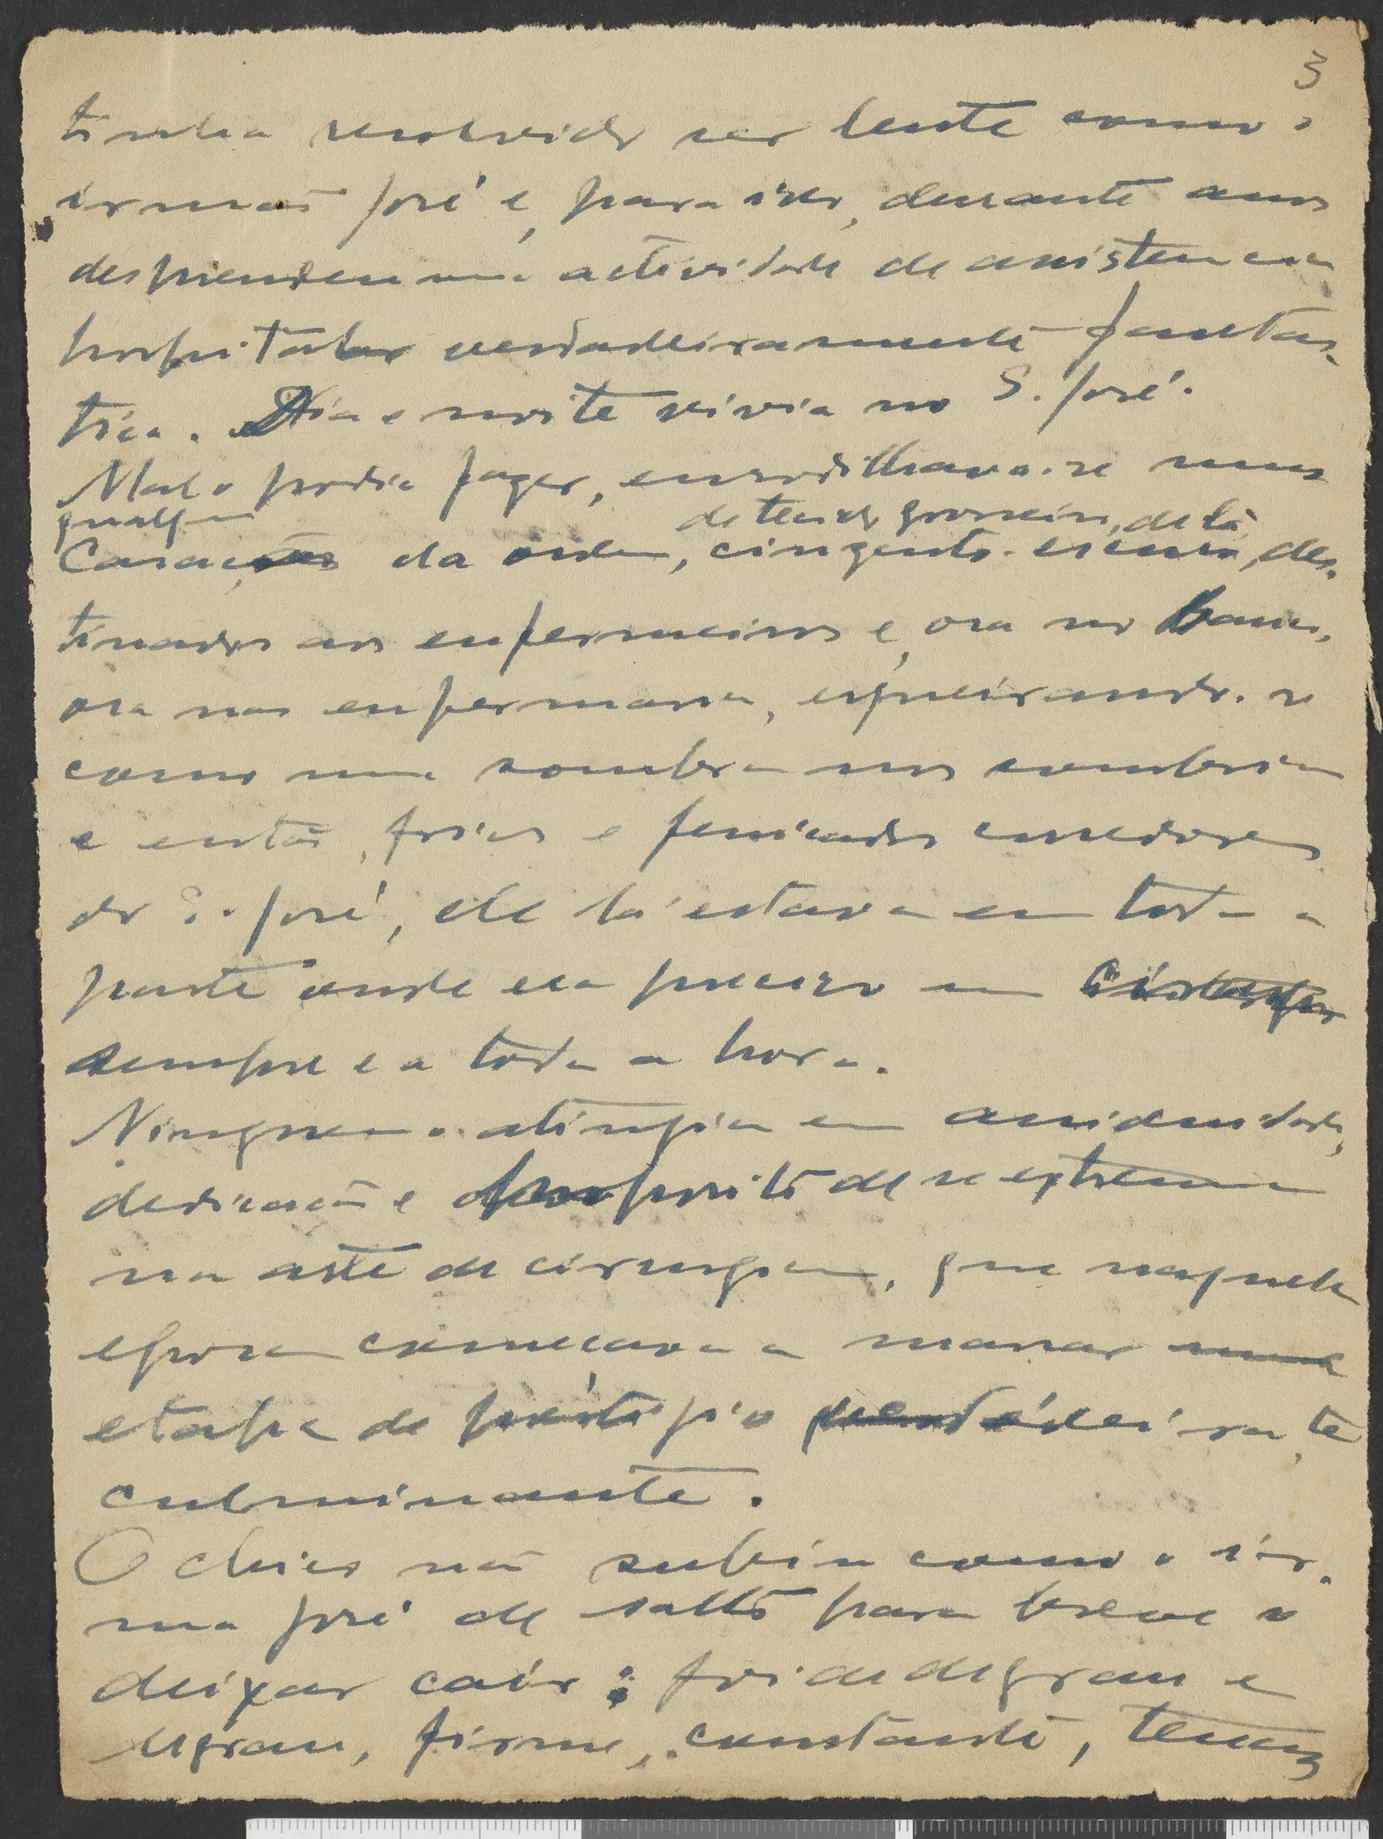 3
tinha resolvido ser lente como o
irmão José e, para isso, durante anos
desprendeu uma actividade de assistencia
hospitalar verdadeiramente fantas-
tica. Dia e noite vivia no S. José.
Mal o podia fazer, enrodilhava-se num
qualquer de tecido grosseiro, de lã
casacão da ordem, cinzento-escuro, des-
tinados aos enfermeiros e, ora no Banco,
ora nas enfermarias, esgueirando-se
como uma sombra nos sombrios
e então, frios e fenicados corredores
do S. José, ele lá estava em toda a
parte onde era preciso
sempre e a toda a hora.
Ninguem o atingia em assiduidade,
dedicação e proposito de se extremar
na arte de cirurgia, que naquela
epoca começava a marcar uma
etapa de prestigio
culminante.
O chico não subiu como o ir-
mão José de salto para breve se
deixar cair: foi de degrau em
degrau, firme, constante, tenaz